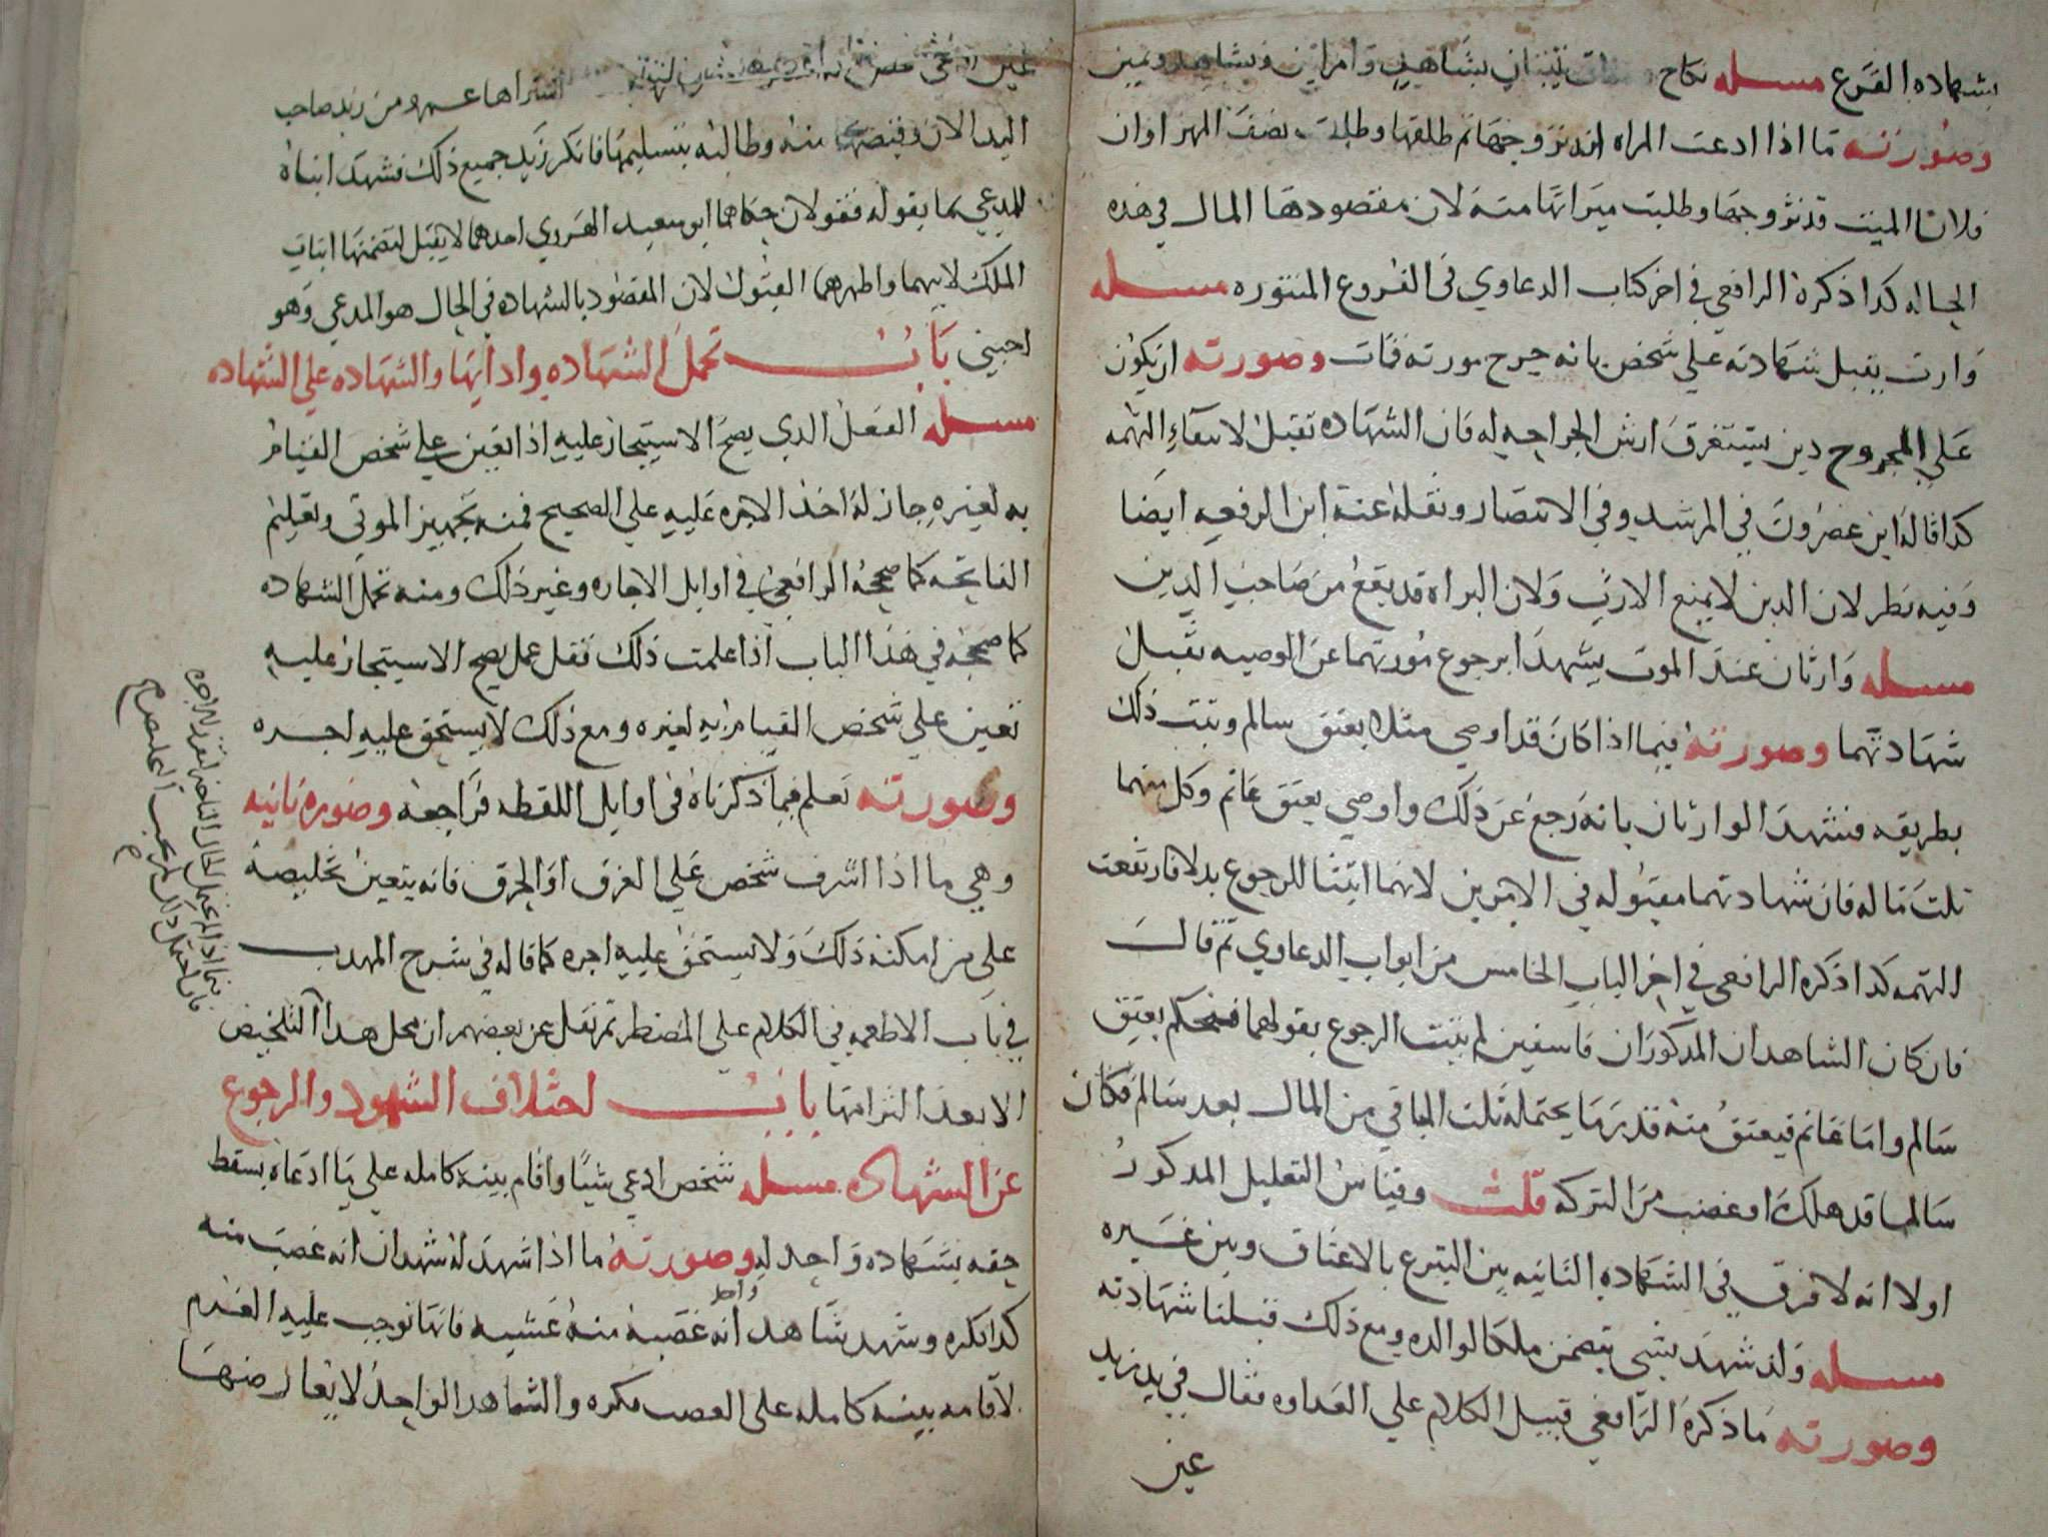 بشهادة الفرع مسله نكاح يثبتان بشاهد وامراتين وبشاهد ويمين
وصورته ما اذا ادعت المراه انه تزوجها ثم طلقها وطلبت نصف المهر او ان
فلانا الميت قد تزوجها وطلبت ميراثها منه لان مقصودها المال في هذه
الحاله كذا ذكره الرافعي في اخر كتاب الدعاوي في الفروع المنثوره مسله
وارث يقبل شهادته على شخص بانه جرح مورثه فمات وصورته ان يكون
على المجروح دين يستغرق ارش الجراحه له فان الشهاده تقبل لانتفاء التهمه
كذا قاله ابن عصرون في المرشد وفي الانتصار ونقله عنه ابن الرفعه ايضا
وفيه نظر لان الدين لا يمنع الارث ولان البراه قد يقع من صاحب الدين
مسله وارثان عند الموت يشهدا برجوع مورثهما عن الوصيه تقبل
شهادتهما وصورته فيما اذا كان قد اوصى مثلا بعتق سالم وثبت ذلك
بطريقه فشهد الوارثان بانه رجع عن ذلك واوصى بعتق غانم وكل منهما
ثلث ماله فان شهادتهما مقبوله في الامرين لانهما اثبتا للرجوع بدلا فارتفعت
التهمه كذا ذكره الرافعي في اخر الباب الخامس من ابواب الدعاوي ثم قال
فان كان الشاهدان المذكوران فاسقين لم يثبت الرجوع بقولهما فيحكم بعتق
سالم واما غانم فيعتق منه قدر ما يحتمله ثلث الباقي من المال بعد سالم فكان
سالما قد هلك او غصب من التركه قلت وقياس التعليل المذكور
اولا انه لا فرق في الشهاده الثانيه بين التبرع بالاعتاق وبين غيره
مسله ولد شهد بشي يتضمن ملكا لوالده ومع ذلك قبلنا شهادته
وصورته ما ذكره الرافعي قبيل الكلام على العداوه فقال في يد زيد
عين
عين ادعى شخص انه اشتراها عمرو من زيد صاحب
اليد الان وقبضها منه وطالبه بتسليمها فانكر زيد جميع ذلك فشهد ابناه
للمدعي بما يقوله فقولان حكاهما ابو سعيد الهروي احدهما لا يقبل لتضمنها اثبات
الملك لابيهما واظهرهما القبول لان المقصود بالشهاده في الحال هو المدعي وهو
اجنبي باب تحمل الشهاده وادايها والشهاده على الشهاده
مسله الفعل الذي يصح الاستيجار عليه اذا تعين على شخص القيام
به لغيره جاز له اخذ الاجره عليه على الصحيح فمنه تجهيز الموتى وتعليم
الفاتحه كما صححه الرافعي في اوايل الاجاره وغير ذلك ومنه تحمل الشهاده
كما صححه في هذا الباب اذا علمت ذلك فقل عمل يصح الاستيجار عليه
تعين على شخص القيام به لغيره ومع ذلك لا يستحق عليه اجره
وصورته تعلم مما ذكرناه في اوايل اللقطه فراجعه وصوره ثانيه
وهي ما اذا اشرف شخص على الغرق او الحرق فانه يتعين تخليصه
على من امكنه ذلك ولا يستحق عليه اجره كما قاله في شرح المهذب
في باب الاطعمه في الكلام على المضطر ثم نقل عن بعضهم ان محل هذا التلخيص
الا بعد التزامها باب اختلاف الشهود والرجوع
عن الشهاده مسله شخص ادعى شيئا واقام بينة كامله على ما ادعاه يسقط
حقه بشهاده واحد له وصورته ما اذا شهد له شهدان انه غصب منه
كذا بكره وشهد شاهد واحد انه غصبه منه عشيه فانها توجب عليه الغرم
لاقامه بينه كامله على الغصب بكره والشاهد الواحد لا يعارضها